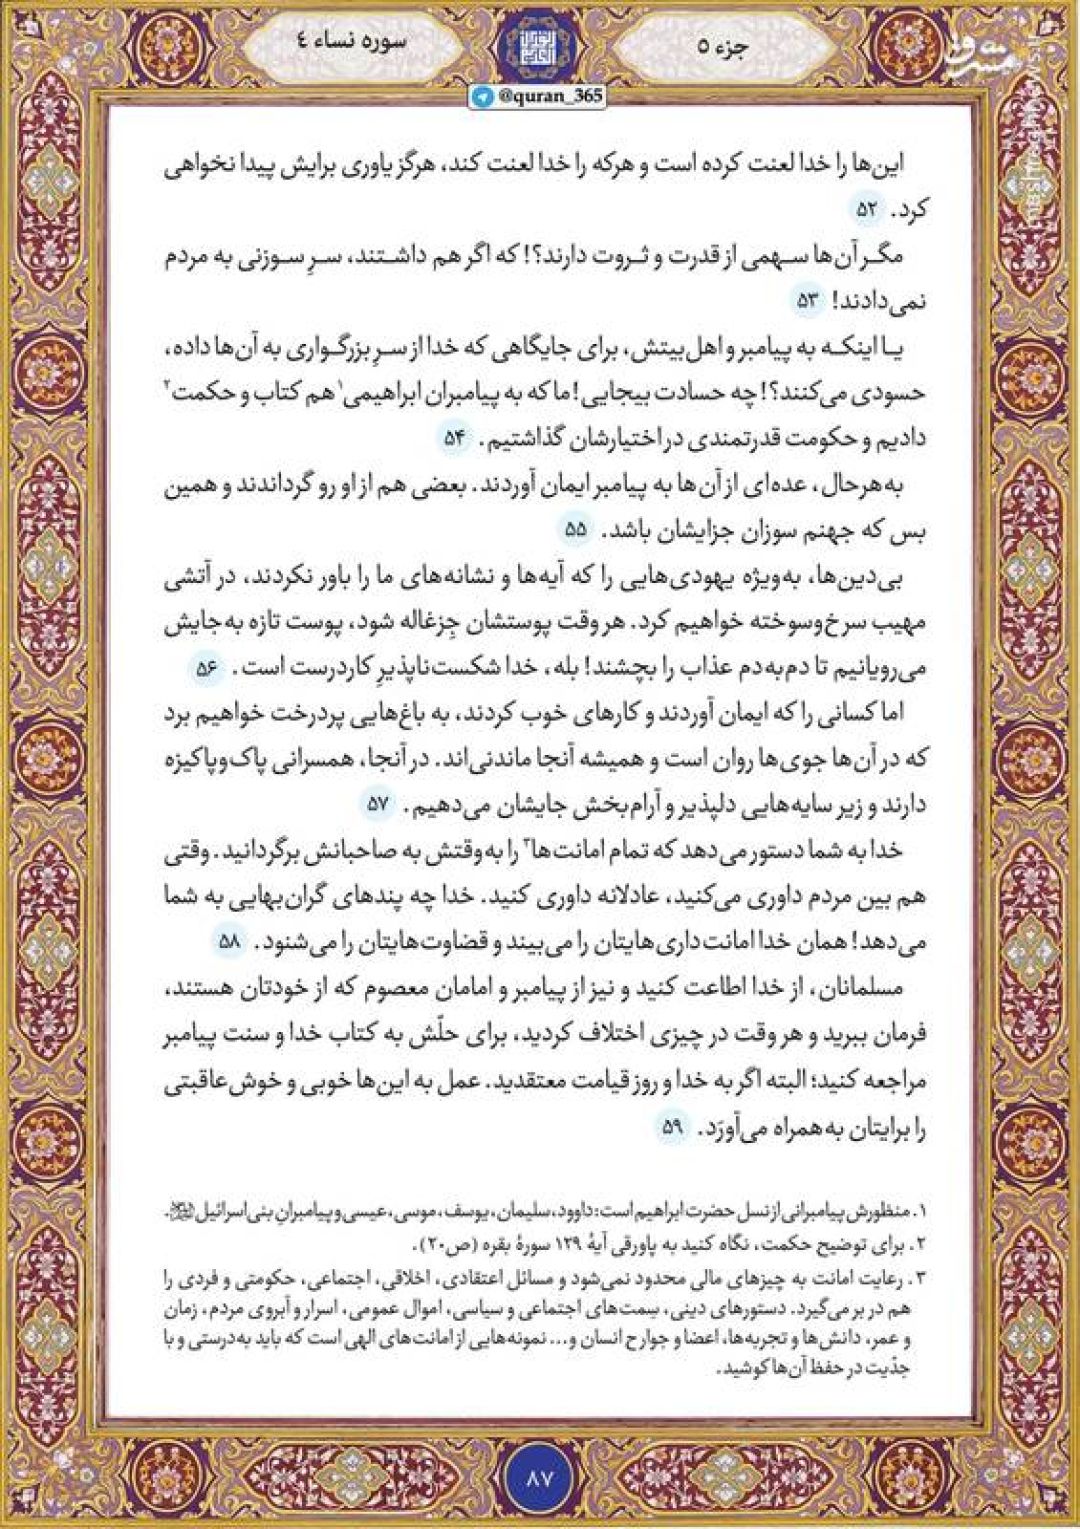 جزء ۵
سوره نساء ٤
مشرق
mashreghnews.ir
@quran_365
این‌ها را خدا لعنت کرده است و هرکه را خدا لعنت کند، هرگز یاوری برایش پیدا نخواهی
کرد. ۵۲
مگر آن‌ها سهمی از قدرت و ثروت دارند؟! که اگر هم داشتند، سرِ سوزنی به مردم
نمی‌دادند! ۵۳
یا اینکه به پیامبر و اهل‌بیتش، برای جایگاهی که خدا از سرِ بزرگواری به آن‌ها داده،
حسودی می‌کنند؟! چه حسادت بیجایی! ما که به پیامبران ابراهیمی۱ هم کتاب و حکمت۲
دادیم و حکومت قدرتمندی در اختیارشان گذاشتیم. ۵۴
به‌هرحال، عده‌ای از آن‌ها به پیامبر ایمان آوردند. بعضی هم از او رو گرداندند و همین
بس که جهنم سوزان جزایشان باشد. ۵۵
بی‌دین‌ها، به‌ویژه یهودی‌هایی را که آیه‌ها و نشانه‌های ما را باور نکردند، در آتشی
مهیب سرخ‌وسوخته خواهیم کرد. هر وقت پوستشان جِزغاله شود، پوست تازه به‌جایش
می‌رویانیم تا دم‌به‌دم عذاب را بچشند! بله، خدا شکست‌ناپذیرِ کاردرست است. ۵۶
اما کسانی را که ایمان آوردند و کارهای خوب کردند، به باغ‌هایی پردرخت خواهیم برد
که در آن‌ها جوی‌ها روان است و همیشه آنجا ماندنی‌اند. در آنجا، همسرانی پاک‌وپاکیزه
دارند و زیر سایه‌هایی دلپذیر و آرام‌بخش جایشان می‌دهیم. ۵۷
خدا به شما دستور می‌دهد که تمام امانت‌ها۳ را به‌وقتش به صاحبانش برگردانید. وقتی
هم بین مردم داوری می‌کنید، عادلانه داوری کنید. خدا چه پندهای گران‌بهایی به شما
می‌دهد! همان خدا امانت‌داری‌هایتان را می‌بیند و قضاوت‌هایتان را می‌شنود. ۵۸
مسلمانان، از خدا اطاعت کنید و نیز از پیامبر و امامان معصوم که از خودتان هستند،
فرمان ببرید و هر وقت در چیزی اختلاف کردید، برای حلّش به کتاب خدا و سنت پیامبر
مراجعه کنید؛ البته اگر به خدا و روز قیامت معتقدید. عمل به این‌ها خوبی و خوش‌عاقبتی
را برایتان به‌همراه می‌آورَد. ۵۹
۱. منظورش پیامبرانی از نسل حضرت ابراهیم است: داوود، سلیمان، یوسف، موسی، عیسی و پیامبرانِ بنی‌اسرائیل.
۲. برای توضیح حکمت، نگاه کنید به پاورقی آیهٔ ۱۲۹ سورهٔ بقره (ص۲۰).
۳. رعایت امانت به چیزهای مالی محدود نمی‌شود و مسائل اعتقادی، اخلاقی، اجتماعی، حکومتی و فردی را
هم در بر می‌گیرد. دستورهای دینی، سِمت‌های اجتماعی و سیاسی، اموال عمومی، اسرار و آبروی مردم، زمان
و عمر، دانش‌ها و تجربه‌ها، اعضا و جوارح انسان و... نمونه‌هایی از امانت‌های الهی است که باید به‌درستی و با
جدّیت در حفظ آن‌ها کوشید.
۸۷